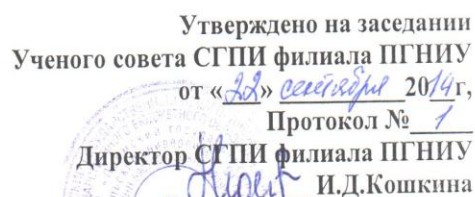 Утверждено на заседании
Ученого совета СГПИ филиала ПГНИУ
от «22» сентября 2014г,
Протокол № 1
Директор СГПИ филиала ПГНИУ
И.Д.Кошкина